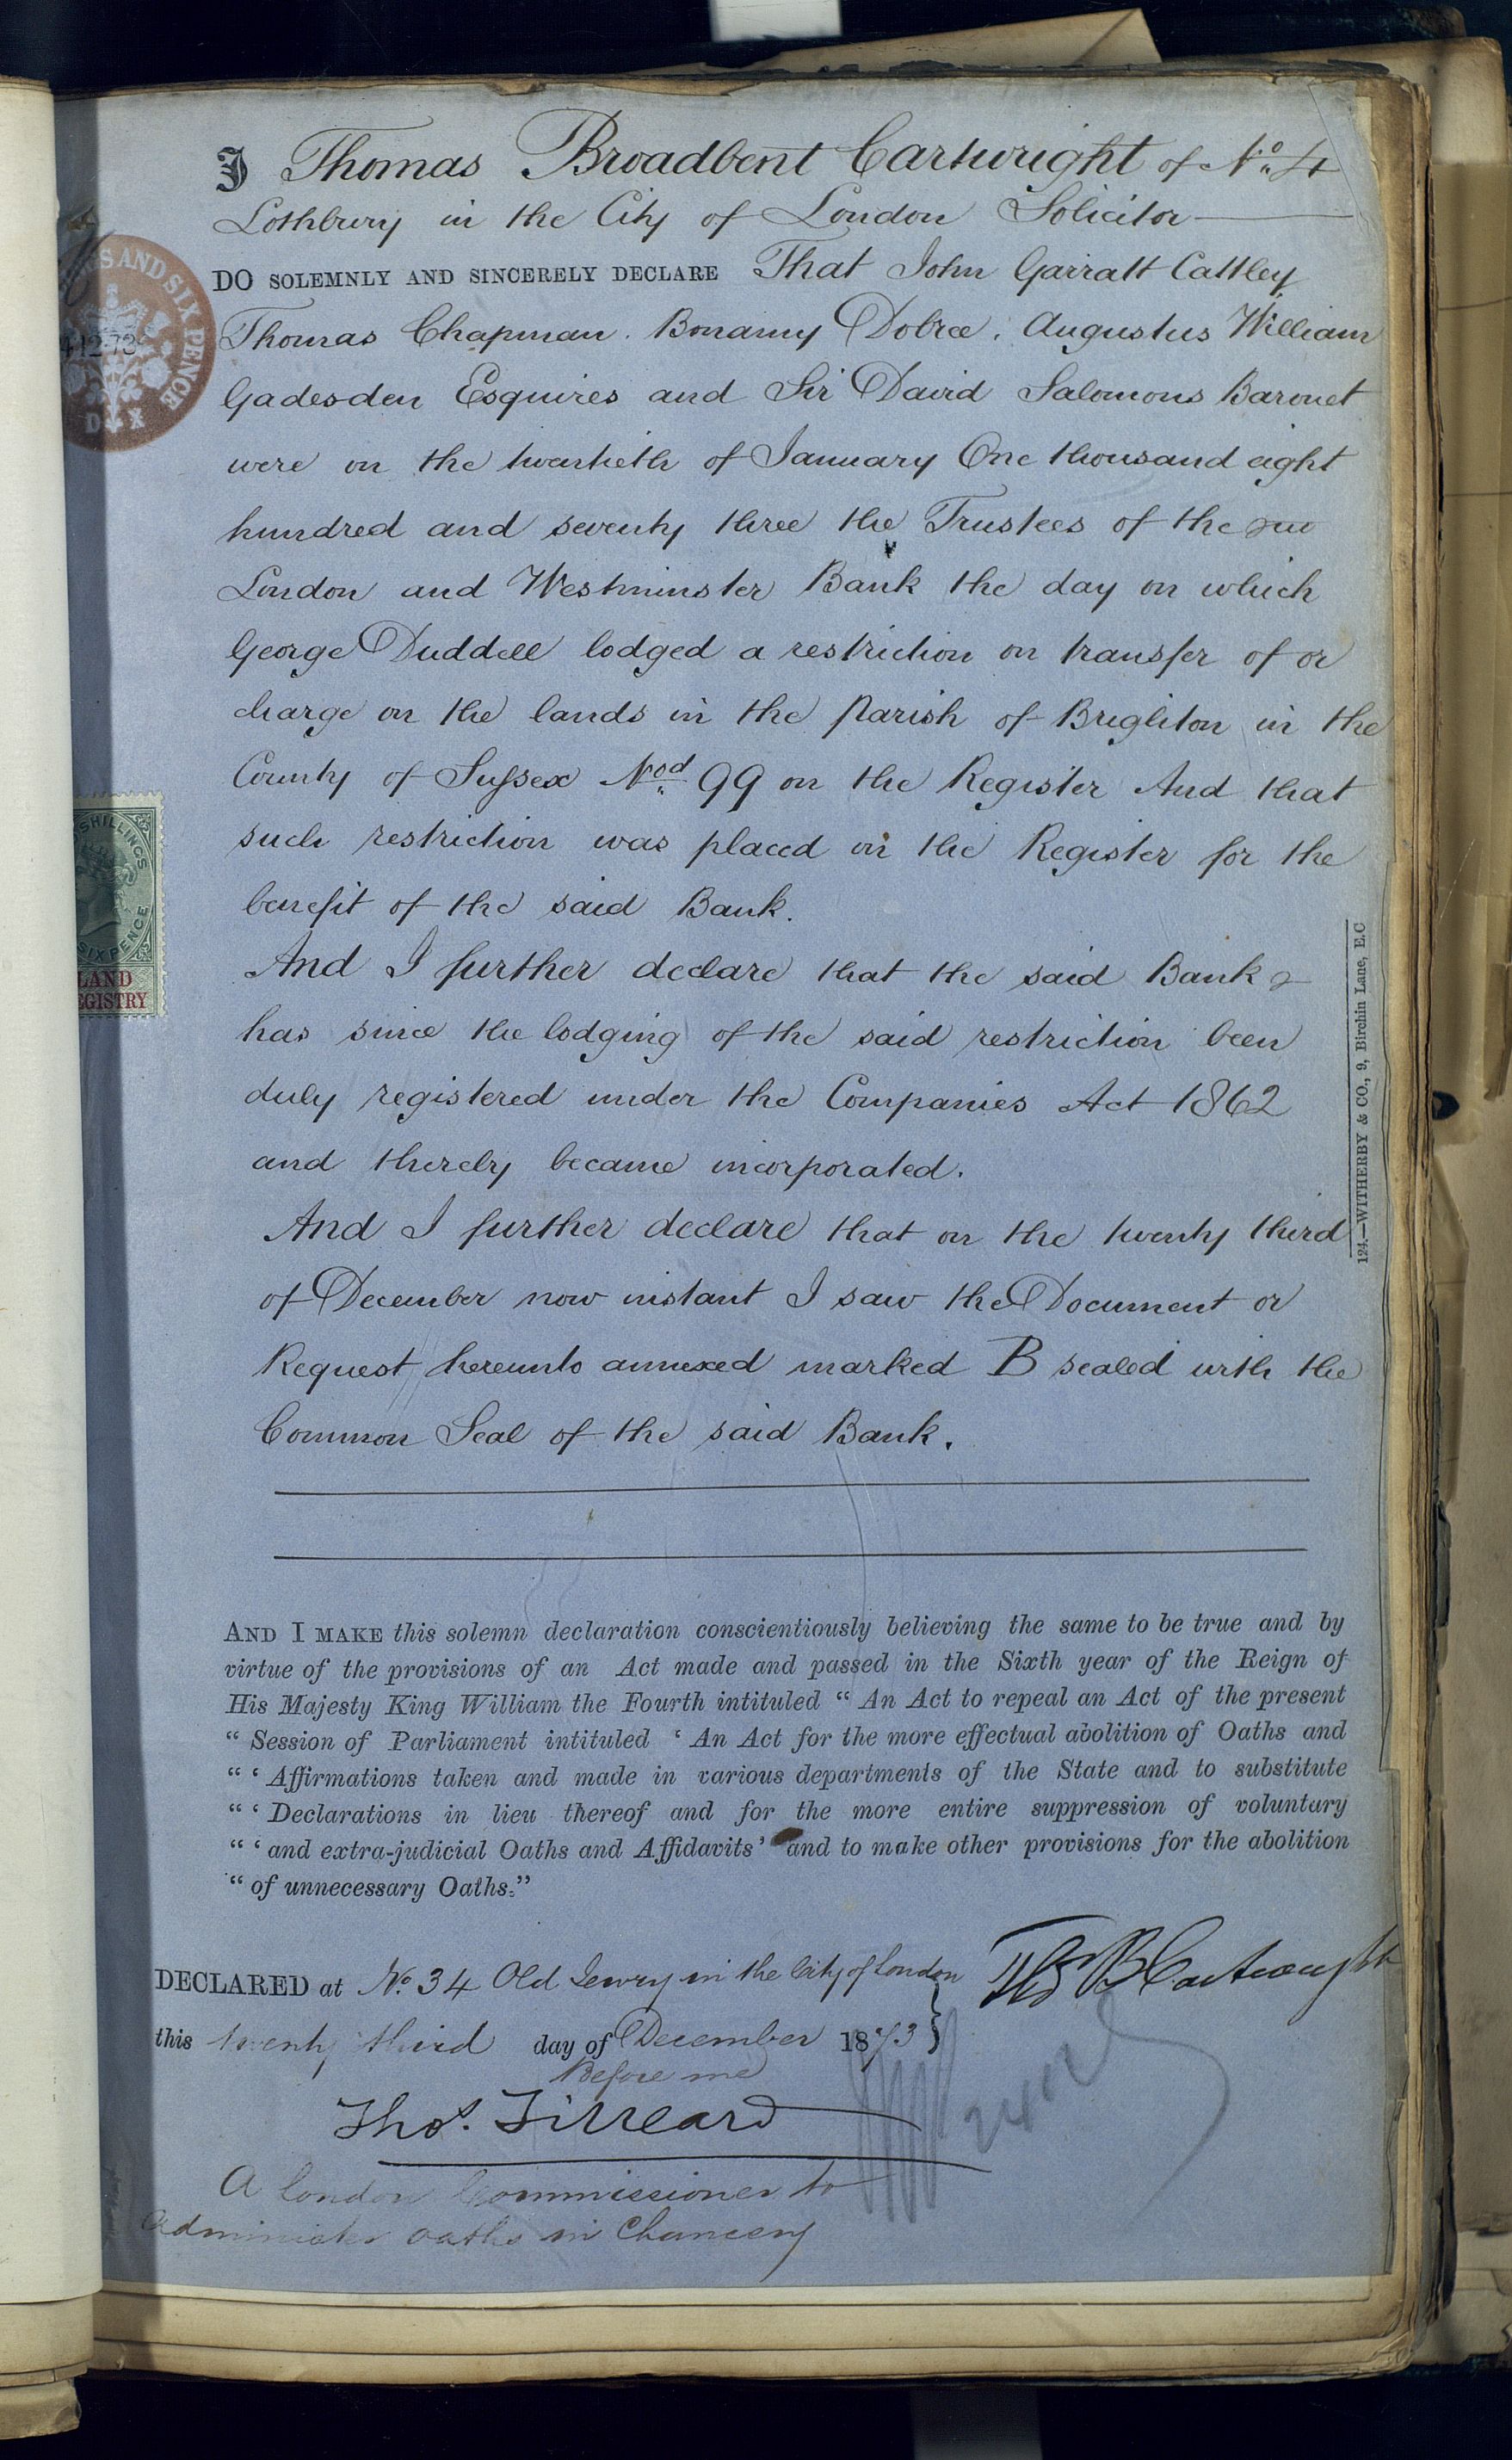 I Thomas Broadbent Cartwright of No. 4
Lothbury in the City of London Solicitor
DO SOLEMNLY AND SINCERELY DECLARE That John Garratt Cattley
Thomas Chapman. Bonamy Dobree. Augustus William
Gadesden Esquires and Sir David Salomons Baronet
were on the twentieth of January One thousand eight
hundred and seventy three the Trustees of the
London and Westminster Bank the day on which
George Duddell lodged a restriction on transfer of or
charge on the lands in the Parish of Brighton in the
County of Sussex Nod 99 on the Register And that
such restriction was placed on the Register for the
benefit of the said Bank.
And I further declare that the said Bank
has since the lodging of the said restriction been
duly registered under the Companies Act 1862
and thereby became incorporated.
And I further declare that on the twenty third
of December now instant I saw the Document or
Request hereunto annexed marked B sealed with the
Common Seal of the said Bank.
AND I MAKE this solemn declaration conscientiously believing the same to be true and by
virtue of the provisions of an Act made and passed in the Sixth year of the Reign of
His Majesty King William the Fourth intituled “ An Act to repeal an Act of the present
“ Session of Parliament intituled ‘ An Act for the more effectual abolition of Oaths and
“ ‘ Affirmations taken and made in various departments of the State and to substitute
“ ‘ Declarations in lieu thereof and for the more entire suppression of voluntary
“ ‘ and extra-judicial Oaths and Affidavits’ and to make other provisions for the abolition
“ of unnecessary Oaths.”
DECLARED at No. 34 Old Jewry in the City of London
this twenty third day of December 1873
Thos B Cartwright
Before me
Thos.
A London Commissioner to
administer oaths in Chancery
124.—WITHERBY & CO., 9, Birchin Lane, E.C
AND SIX PENCE
12·73
D X
SHILLINGS
SIX PENCE
LAND
EGISTRY